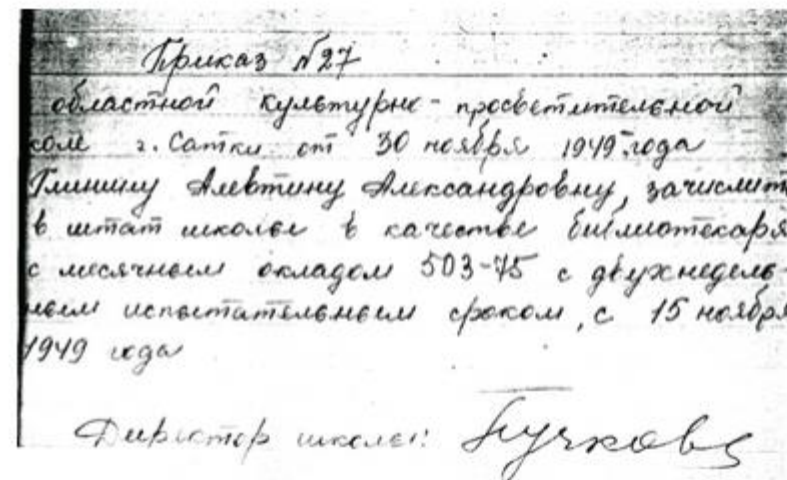 Приказ №27
областной культурно-просветительной
коле г. Сатки от 30 ноября 1949 года
Глинину Алевтину Александровну, зачислит
в штат школы в качестве библиотекаря
с месячным окладом 503-75 с двухнедель-
ным испытательным сроком, с 15 ноября
1949 года
Директор школы: Пучкова